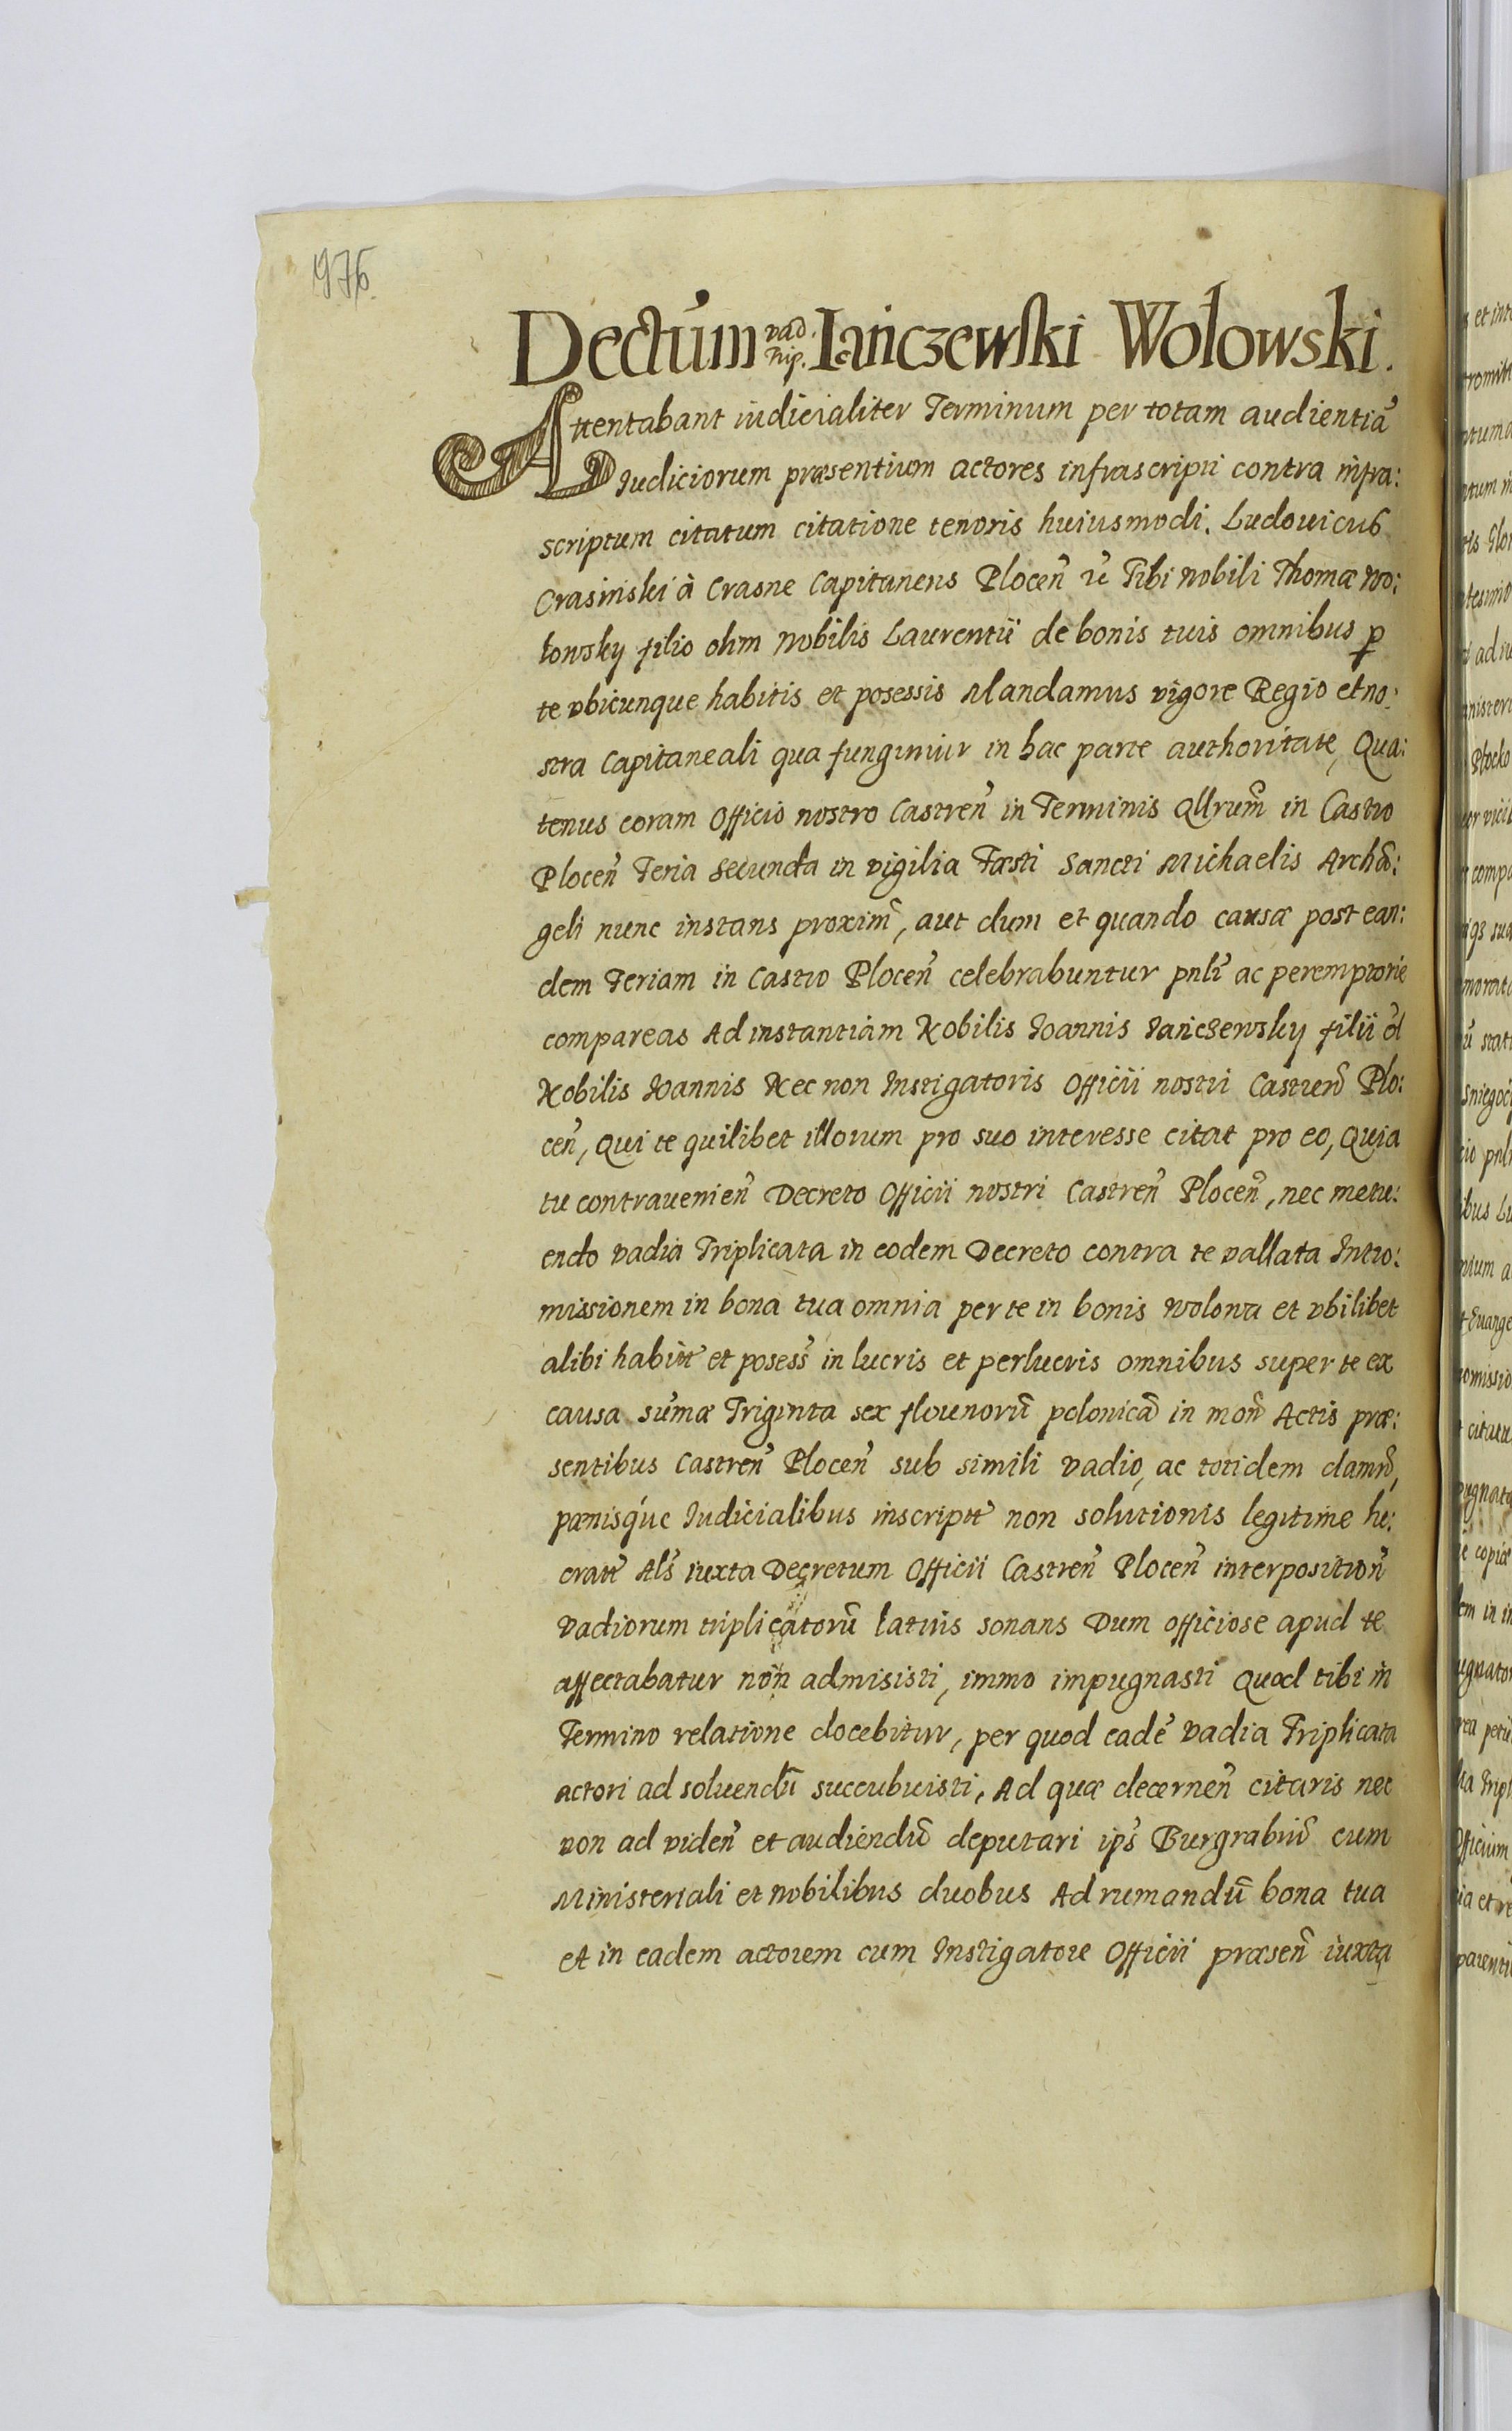 976
Dectum vad. Trip. Iańczewski Wołowski.
Attentabant iudicialiter Terminum per totam audientiã
Iudiciorum præsentium actores infrascripti contra infra:
scriptum citatum citatione tenoris huiusmodi. Ludouicus
Crasinski à Crasne Capitaneus Plocen̄ Tibi Nobili Thomæ Wo:
łowsky filio olim Nobilis Laurentii de bonis tuis omnibus ꝑ
te vbicunque habitis et posessis Mandamus vigore Regio et no:
stra Capitaneali qua fungimur in hac parte authoritate, Qua:
tenus coram Officio nostro Castren̄ in Terminis Qllrum̄ in Castro
Plocen̄ Feria Secunda in vigilia Fæsti Sancti Michaelis Archã:
geli nunc instans proxim̄, aut dum et quando causæ post ean:
dem Feriam in Castro Plocen̄ celebrabuntur pnlr̄ ac peremptorie
compareas Ad instantiam Nobilis Ioannis Ianczewsky filii õl
Nobilis Ioannis Nec non Instigatoris Officii nostri Castren̄ Plo:
cen̄, Qui te quilibet illorum pro suo interesse citat pro eo, Quia
tu contravenien̄ Decreto Officii nostri Castren̄ Plocen̄, nec metu:
endo vadia Triplicata in eodem Decreto contra te vallata Intro:
missionem in bona tua omnia per te in bonis Wołowa et vbilibet
alibi habitt̄ et posess̄ in lucris et perlucris omnibus super te ex
causa sum̄æ Triginta sex florenorũ polonicã in mon̄ Actis præ:
sentibus Castren̄ Plocen̄ sub simili vadio, ac totidem damn̄,
pænisque Iudicialibus inscriptt̄ non solutionis legitime lu:
cratt̄ Als̄ iuxta Decretum Officii Castren̄ Plocen̄ interposition̄
Vadiorum triplicatorũ latius sonans Dum officiose apud te
affectabatur non admisisti, immo impugnasti Quod tibi in
Termino relatione docebitur, per quod eadẽ vadia Triplicata
actori ad soluendũ succubuisti, Ad quæ decernen̄ citaris nec
non ad viden̄ et audiendũ deputari ips̄ Burgrabiũ cum
Ministeriali et nobilibus duobus Ad rumandũ bona tua
et in eadem actorem cum Instigatore Officii præsen̄ iuxta